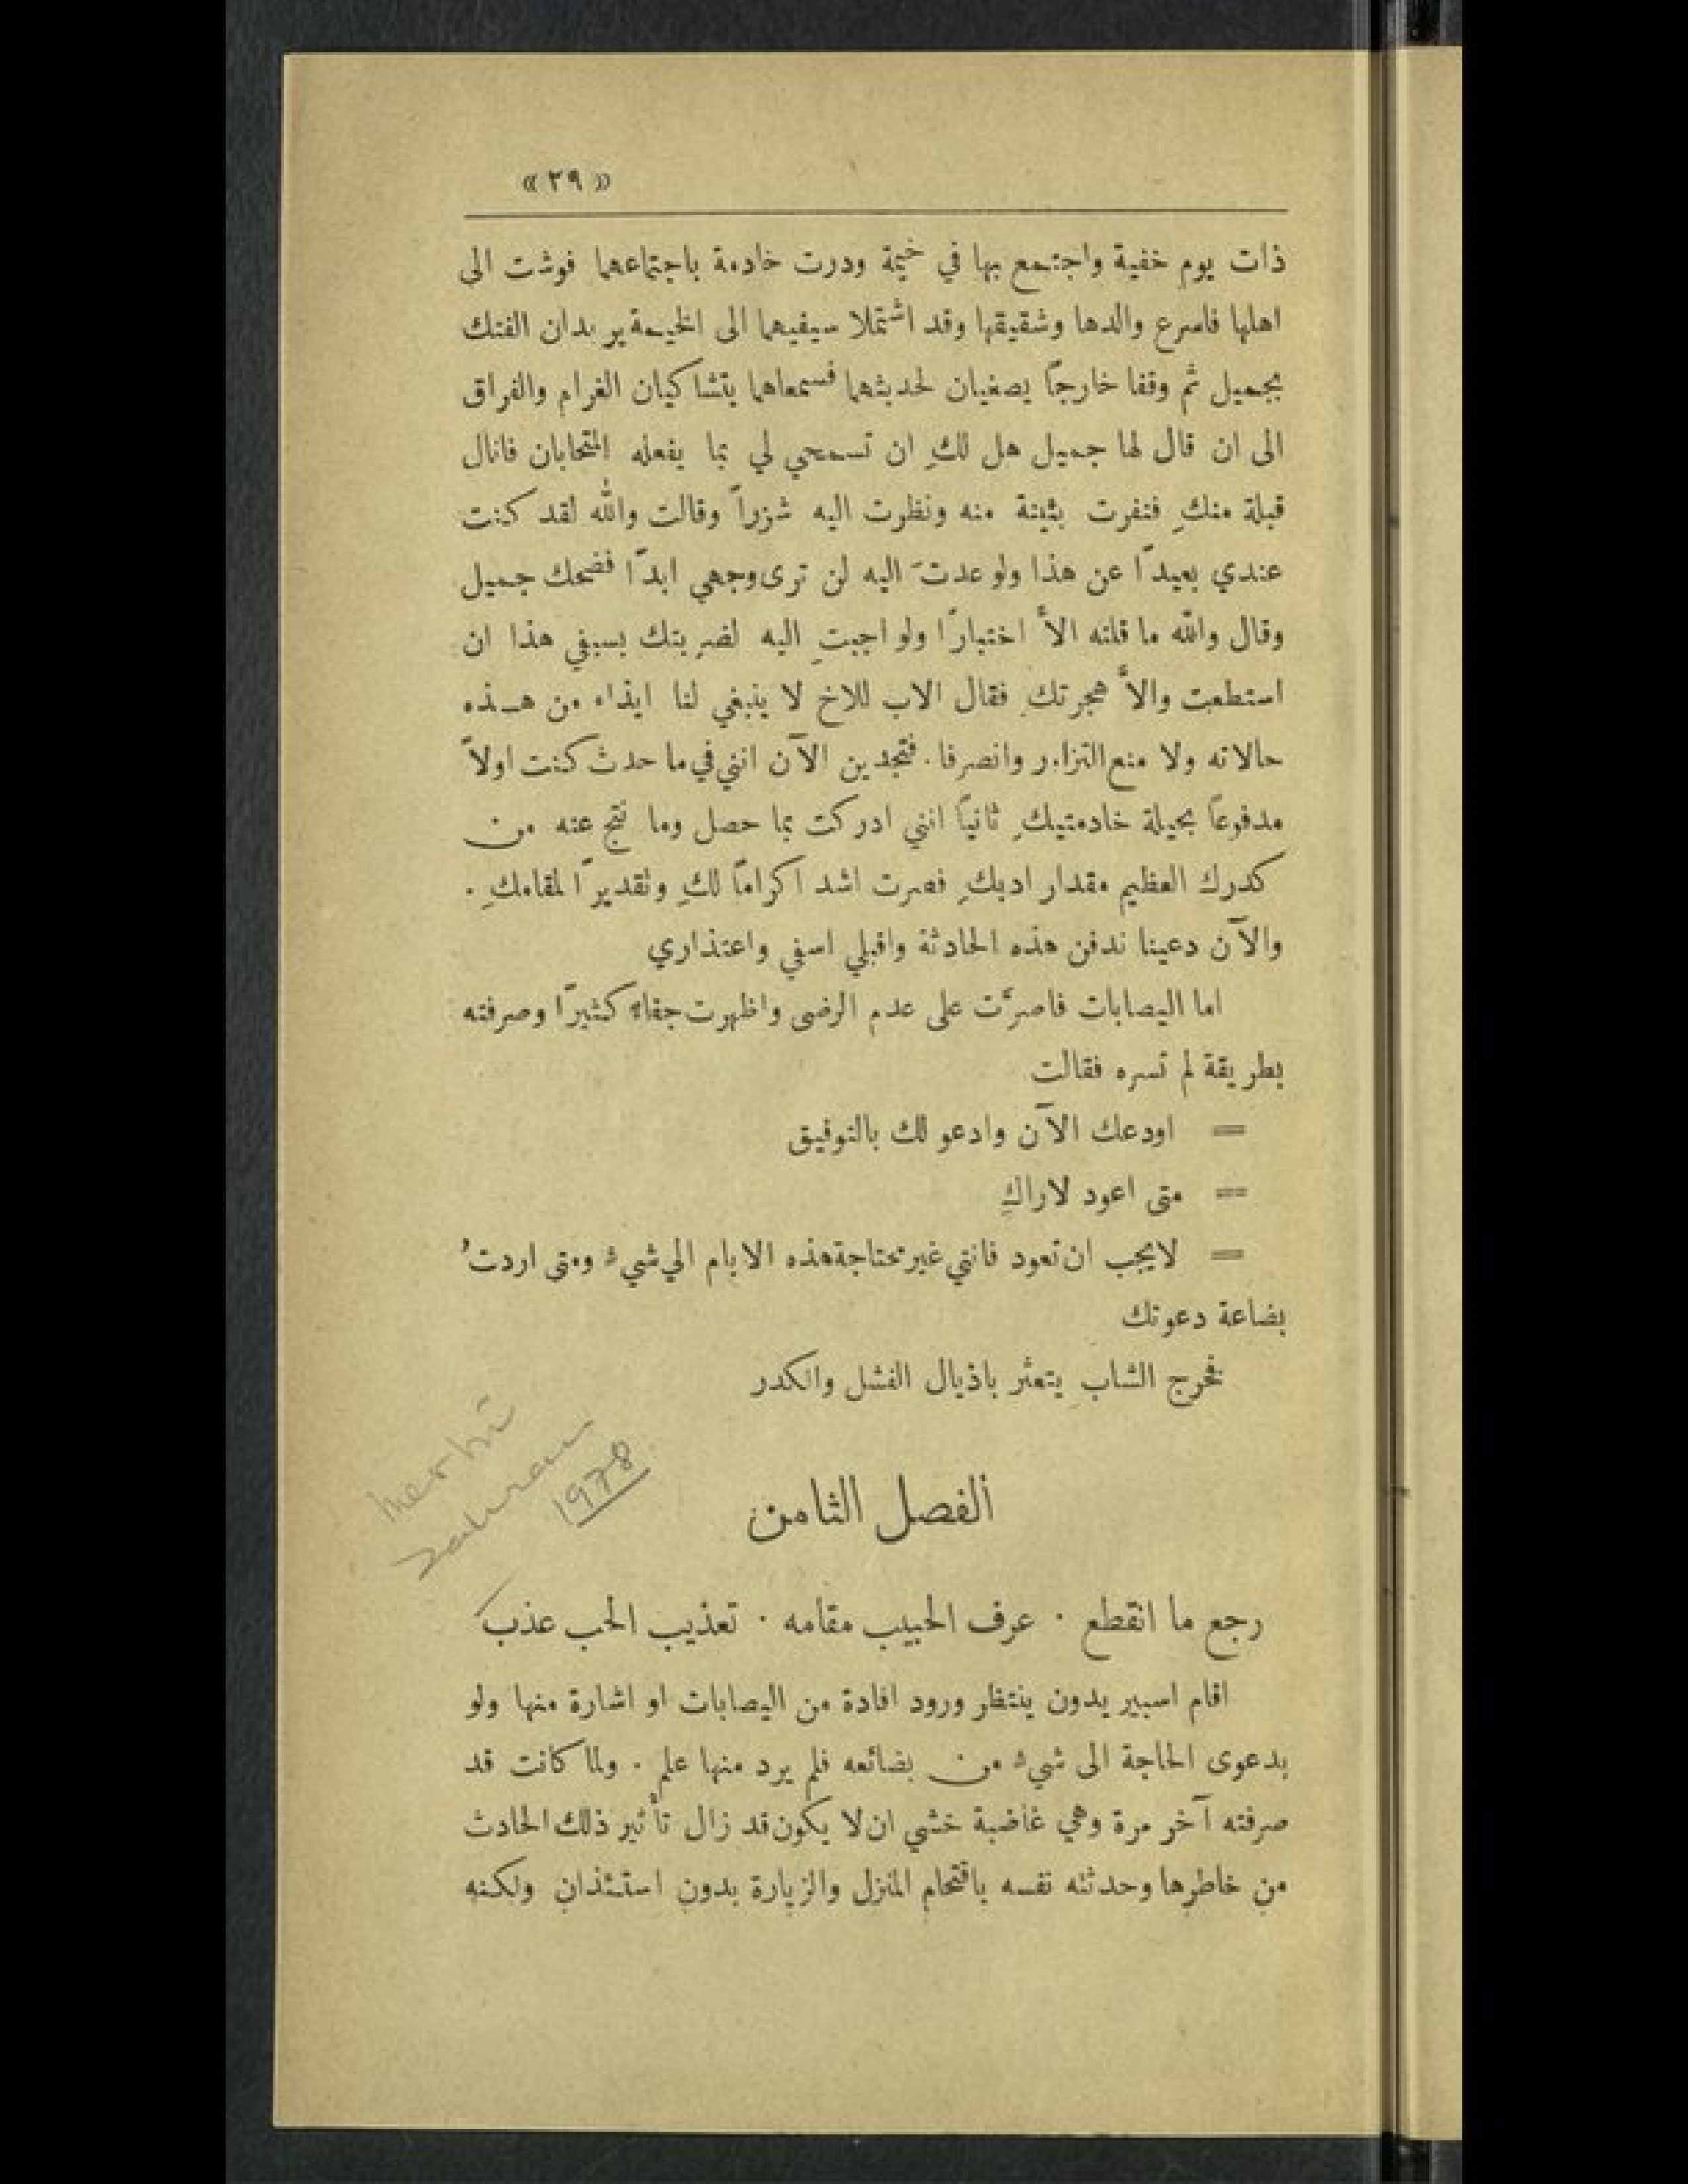 « ٣٩ »
ذات يوم خفية واجتمع بها في خيمة ودرت خادمة باجتماعهما فوشت الى
اهلها فاسرع والدها وشقيقها وقد اشتملا سيفيهما الى الخيمة يريدان الفتك
بجميل ثم وقفا خارجًا يصغيان لحديثهما فسمعاهما يتشاكيان الغرام والفراق
الى ان قال لها جميل هل لكِ ان تسمحي لي بما يفعله المتحابان فانال
قبلة منكِ فنفرت بثينة منه ونظرت اليه شزراً وقالت والله لقد كنت
عندي بعيدًا عن هذا ولو عدتَ اليه لن ترى وجهي ابدًا فضحك جميل
وقال والله ما قلته الاَّ اختبارًا ولو اجبتِ اليه لضربتك بسيفي هذا ان
استطعت والاَّ هجرتكِ فقال الاب للاخ لا ينبغي لنا ايذاء من هذه
حالاته ولا منع التزاور وانصرفا . فتجدين الآن انني في ما حدث كنت اولاً
مدفوعًا بحيلة خادمتيكِ ثانيًا انني ادركت بما حصل وما نتج عنه من
كدرك العظيم مقدار ادبكِ فصرت اشد اكرامًا لكِ وتقديرًا لمقامكِ .
والآن دعينا ندفن هذه الحادثة واقبلي اسفي واعتذاري
اما اليصابات فاصرَّت على عدم الرضى واظهرت جفاءً كثيرًا وصرفته
بطريقة لم تسره فقالت
= اودعك الآن وادعو لك بالتوفيق
= متى اعود لاراكِ
= لا يجب ان تعود فانني غير محتاجة هذه الايام الى شيء ومتى اردتُ
بضاعة دعوتك
فخرج الشاب يتعثر باذيال الفشل والكدر
1978
الفصل الثامن
رجع ما انقطع . عرف الحبيب مقامه . تعذيب الحب عذب
اقام اسبير بدون ينتظر ورود افادة من اليصابات او اشارة منها ولو
بدعوى الحاجة الى شيء من بضائعه فلم يرد منها علم . ولما كانت قد
صرفته آخر مرة وهي غاضبة خشي ان لا يكون قد زال تأثير ذلك الحادث
من خاطرها وحدثته نفسه باقتحام المنزل والزيارة بدون استئذان ولكنه